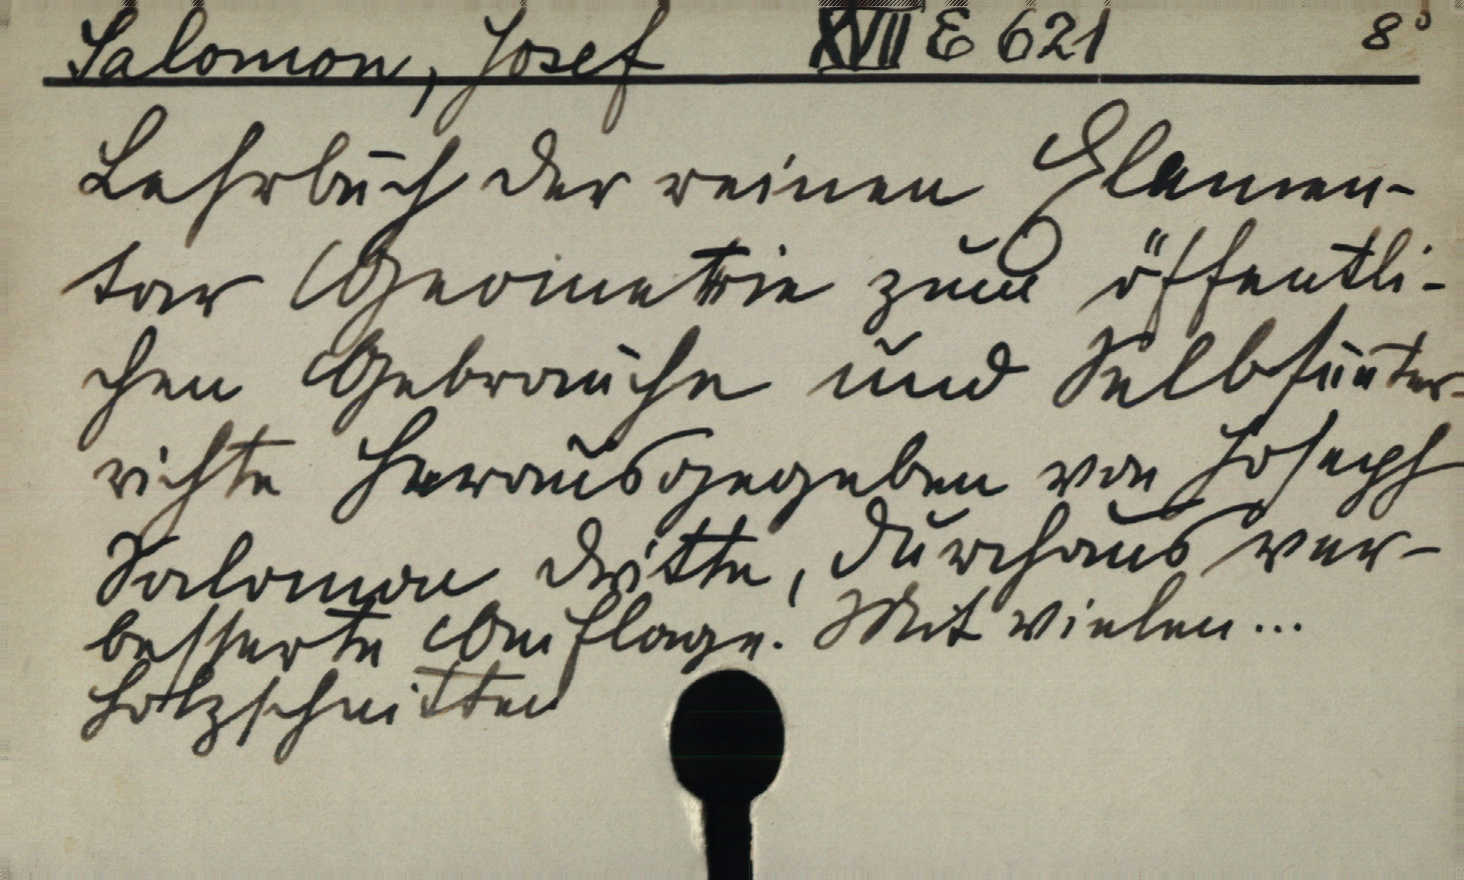 Salomon, Josef XVII E 621 8°
Lehrbuch der reinen Elemen-
tar Geometrie zum öffentli-
chen Gebrauche und Selbstunter-
richte herausgegeben von Joseph
Salomon dritte, durchaus ver-
besserte Auflage. Mit vielen...
Holzschnitten